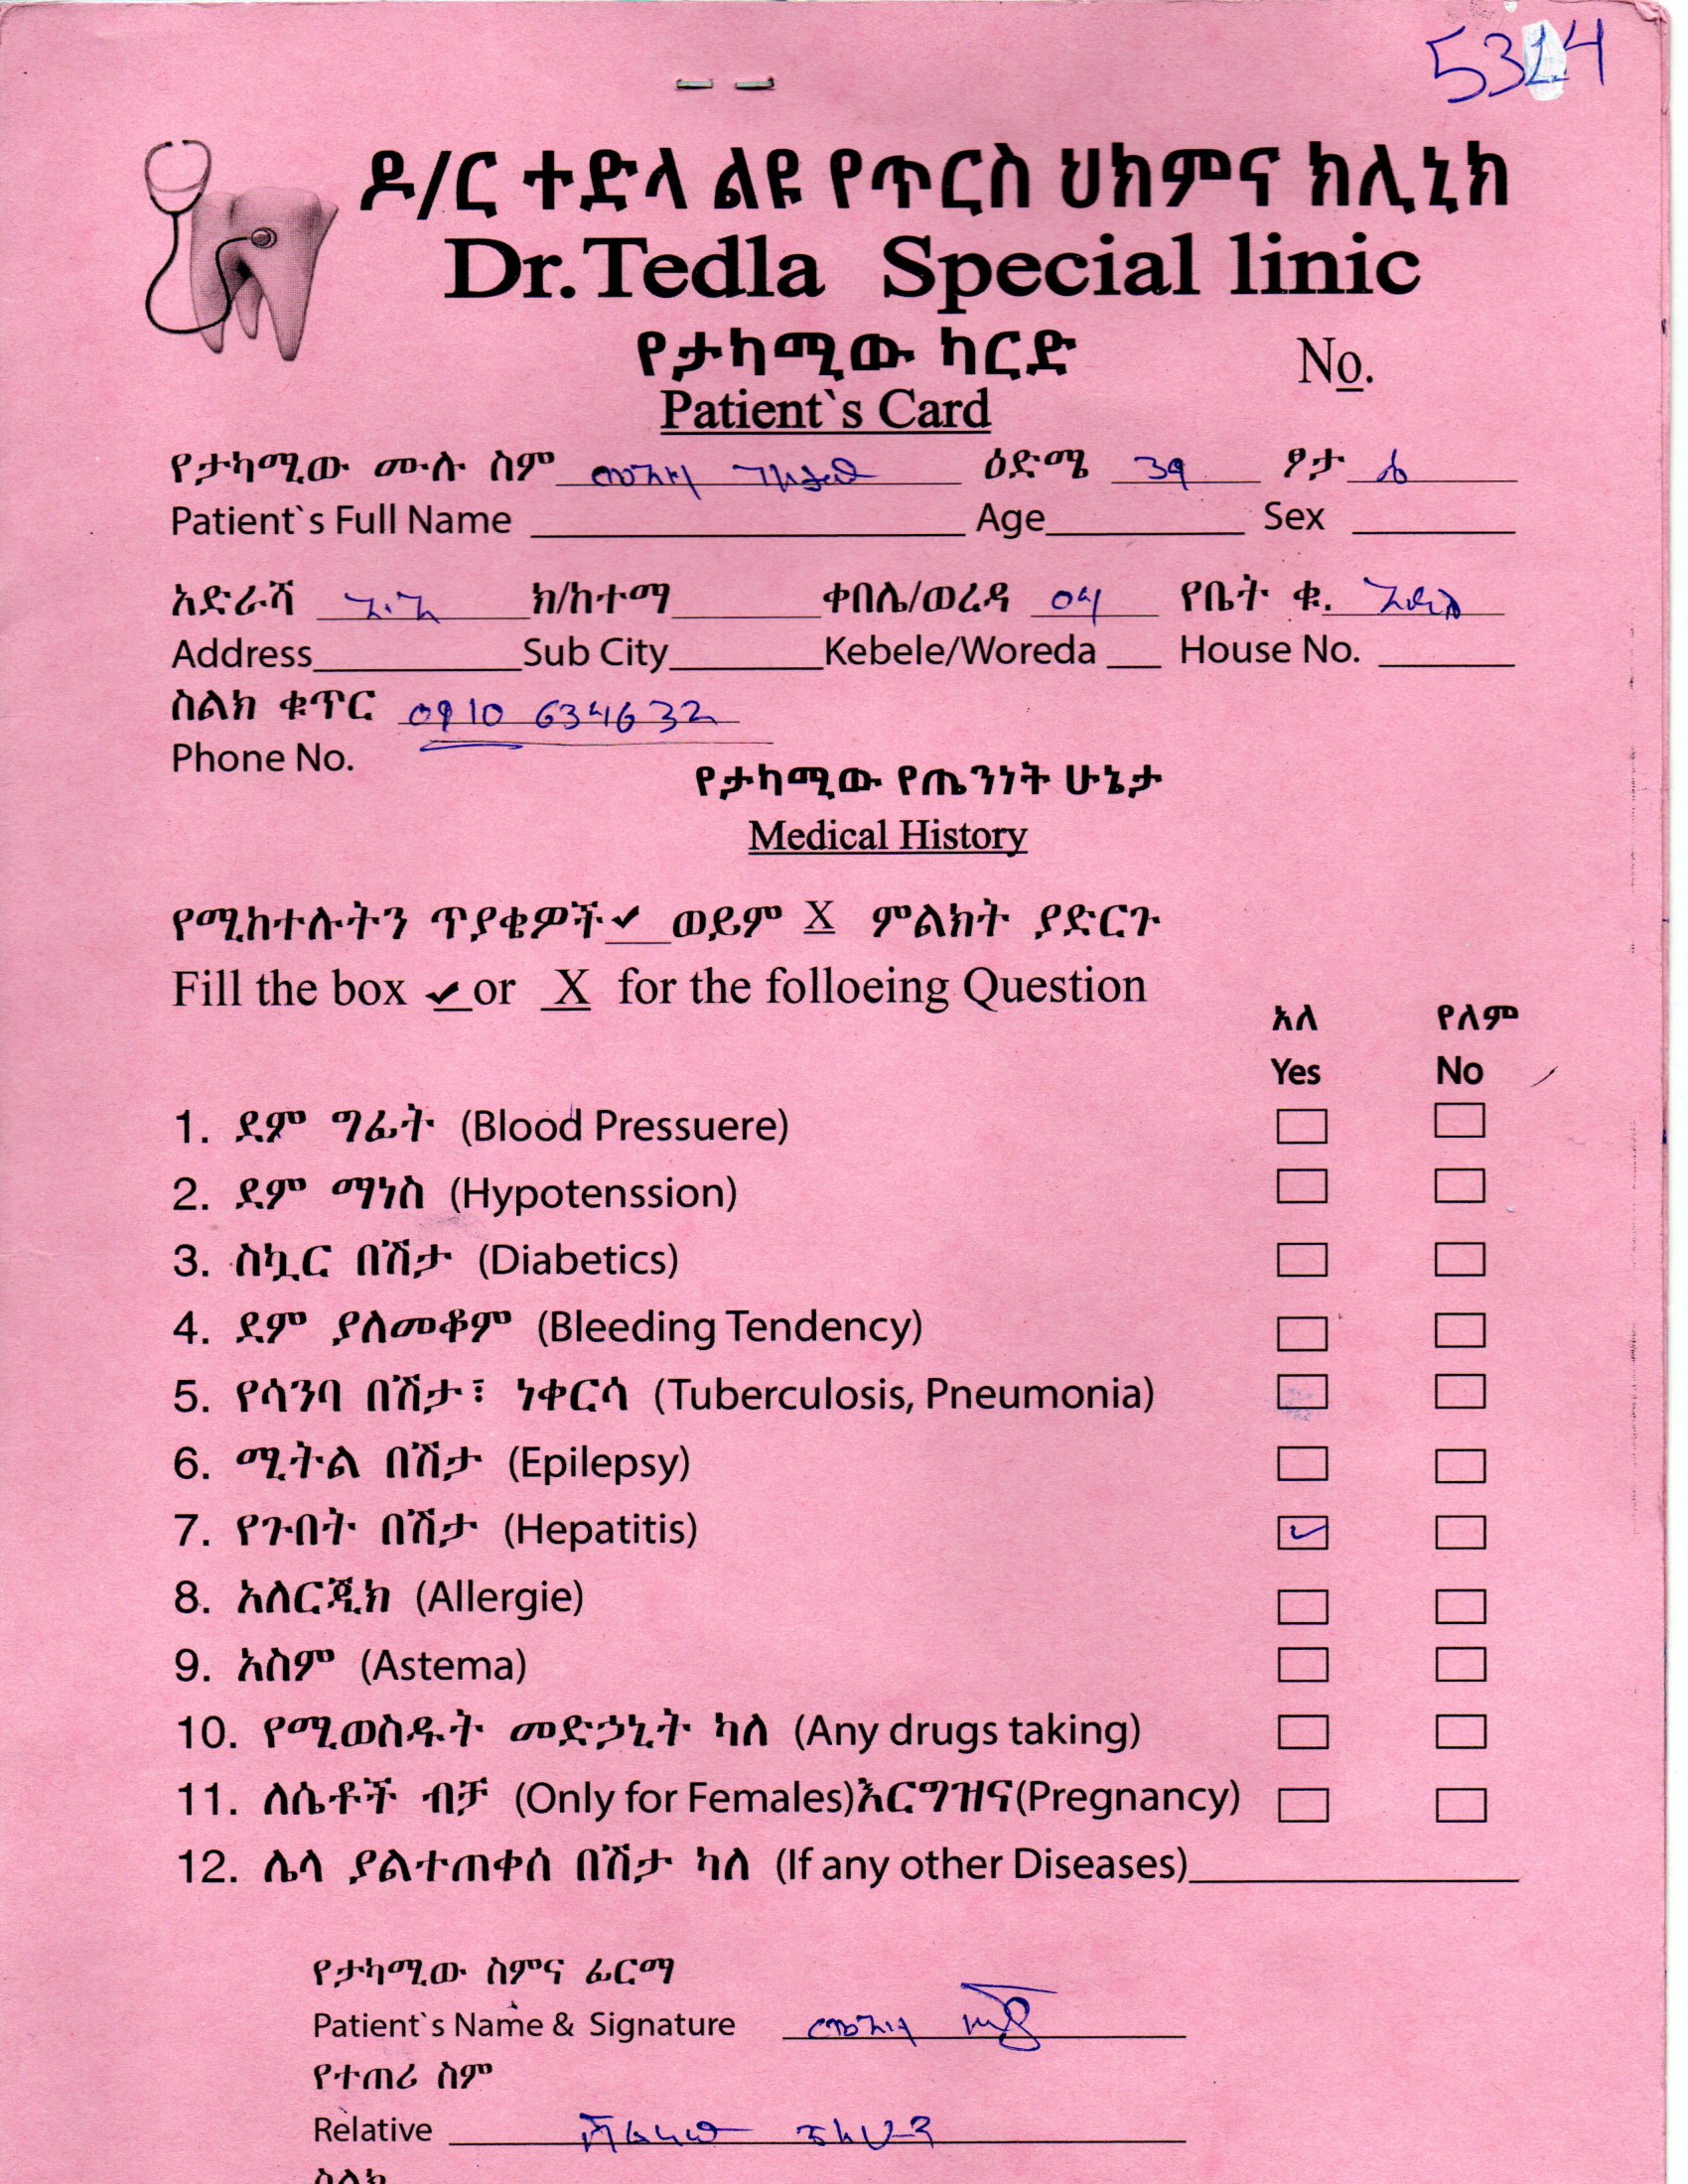 5314
ዶ/ር ተድላ ልዩ የጥርስ ህክምና ክሊኒክ
Dr.Tedla Special linic
የታካሚው ካርድ
No.
Patient`s Card
የታካሚው ሙሉ ስም ዕድሜ 39 ፆታ ሴ
Patient`s Full Name Age Sex
አድራሻ አ.አ ክ/ከተማ ቀበሌ/ወረዳ 04 የቤት ቁ. አዲስ
Address Sub City Kebele/Woreda House No.
ስልክ ቁጥር 0910 634632
Phone No.
የታካሚው የጤንነት ሁኔታ
Medical History
የሚከተሉትን ጥያቄዎች✔ ወይም X ምልክት ያድርጉ
Fill the box ✔ or X for the folloeing Question
አለ የለም
Yes No
1. ደም ግፊት (Blood Pressuere)
2. ደም ማነስ (Hypotenssion)
3. ስኳር በሽታ (Diabetics)
4. ደም ያለመቆም (Bleeding Tendency)
5. የሳንባ በሽታ፣ ነቀርሳ (Tuberculosis, Pneumonia)
6. ሚትል በሽታ (Epilepsy)
7. የጉበት በሽታ (Hepatitis) ✓
8. አለርጂክ (Allergie)
9. አስም (Astema)
10. የሚወስዱት መድኃኒት ካለ (Any drugs taking)
11. ለሴቶች ብቻ (Only for Females)እርግዝና(Pregnancy)
12. ሌላ ያልተጠቀሰ በሽታ ካለ (If any other Diseases)
የታካሚው ስምና ፊርማ
Patient`s Name & Signature
የተጠሪ ስም
Relative
ስልክ